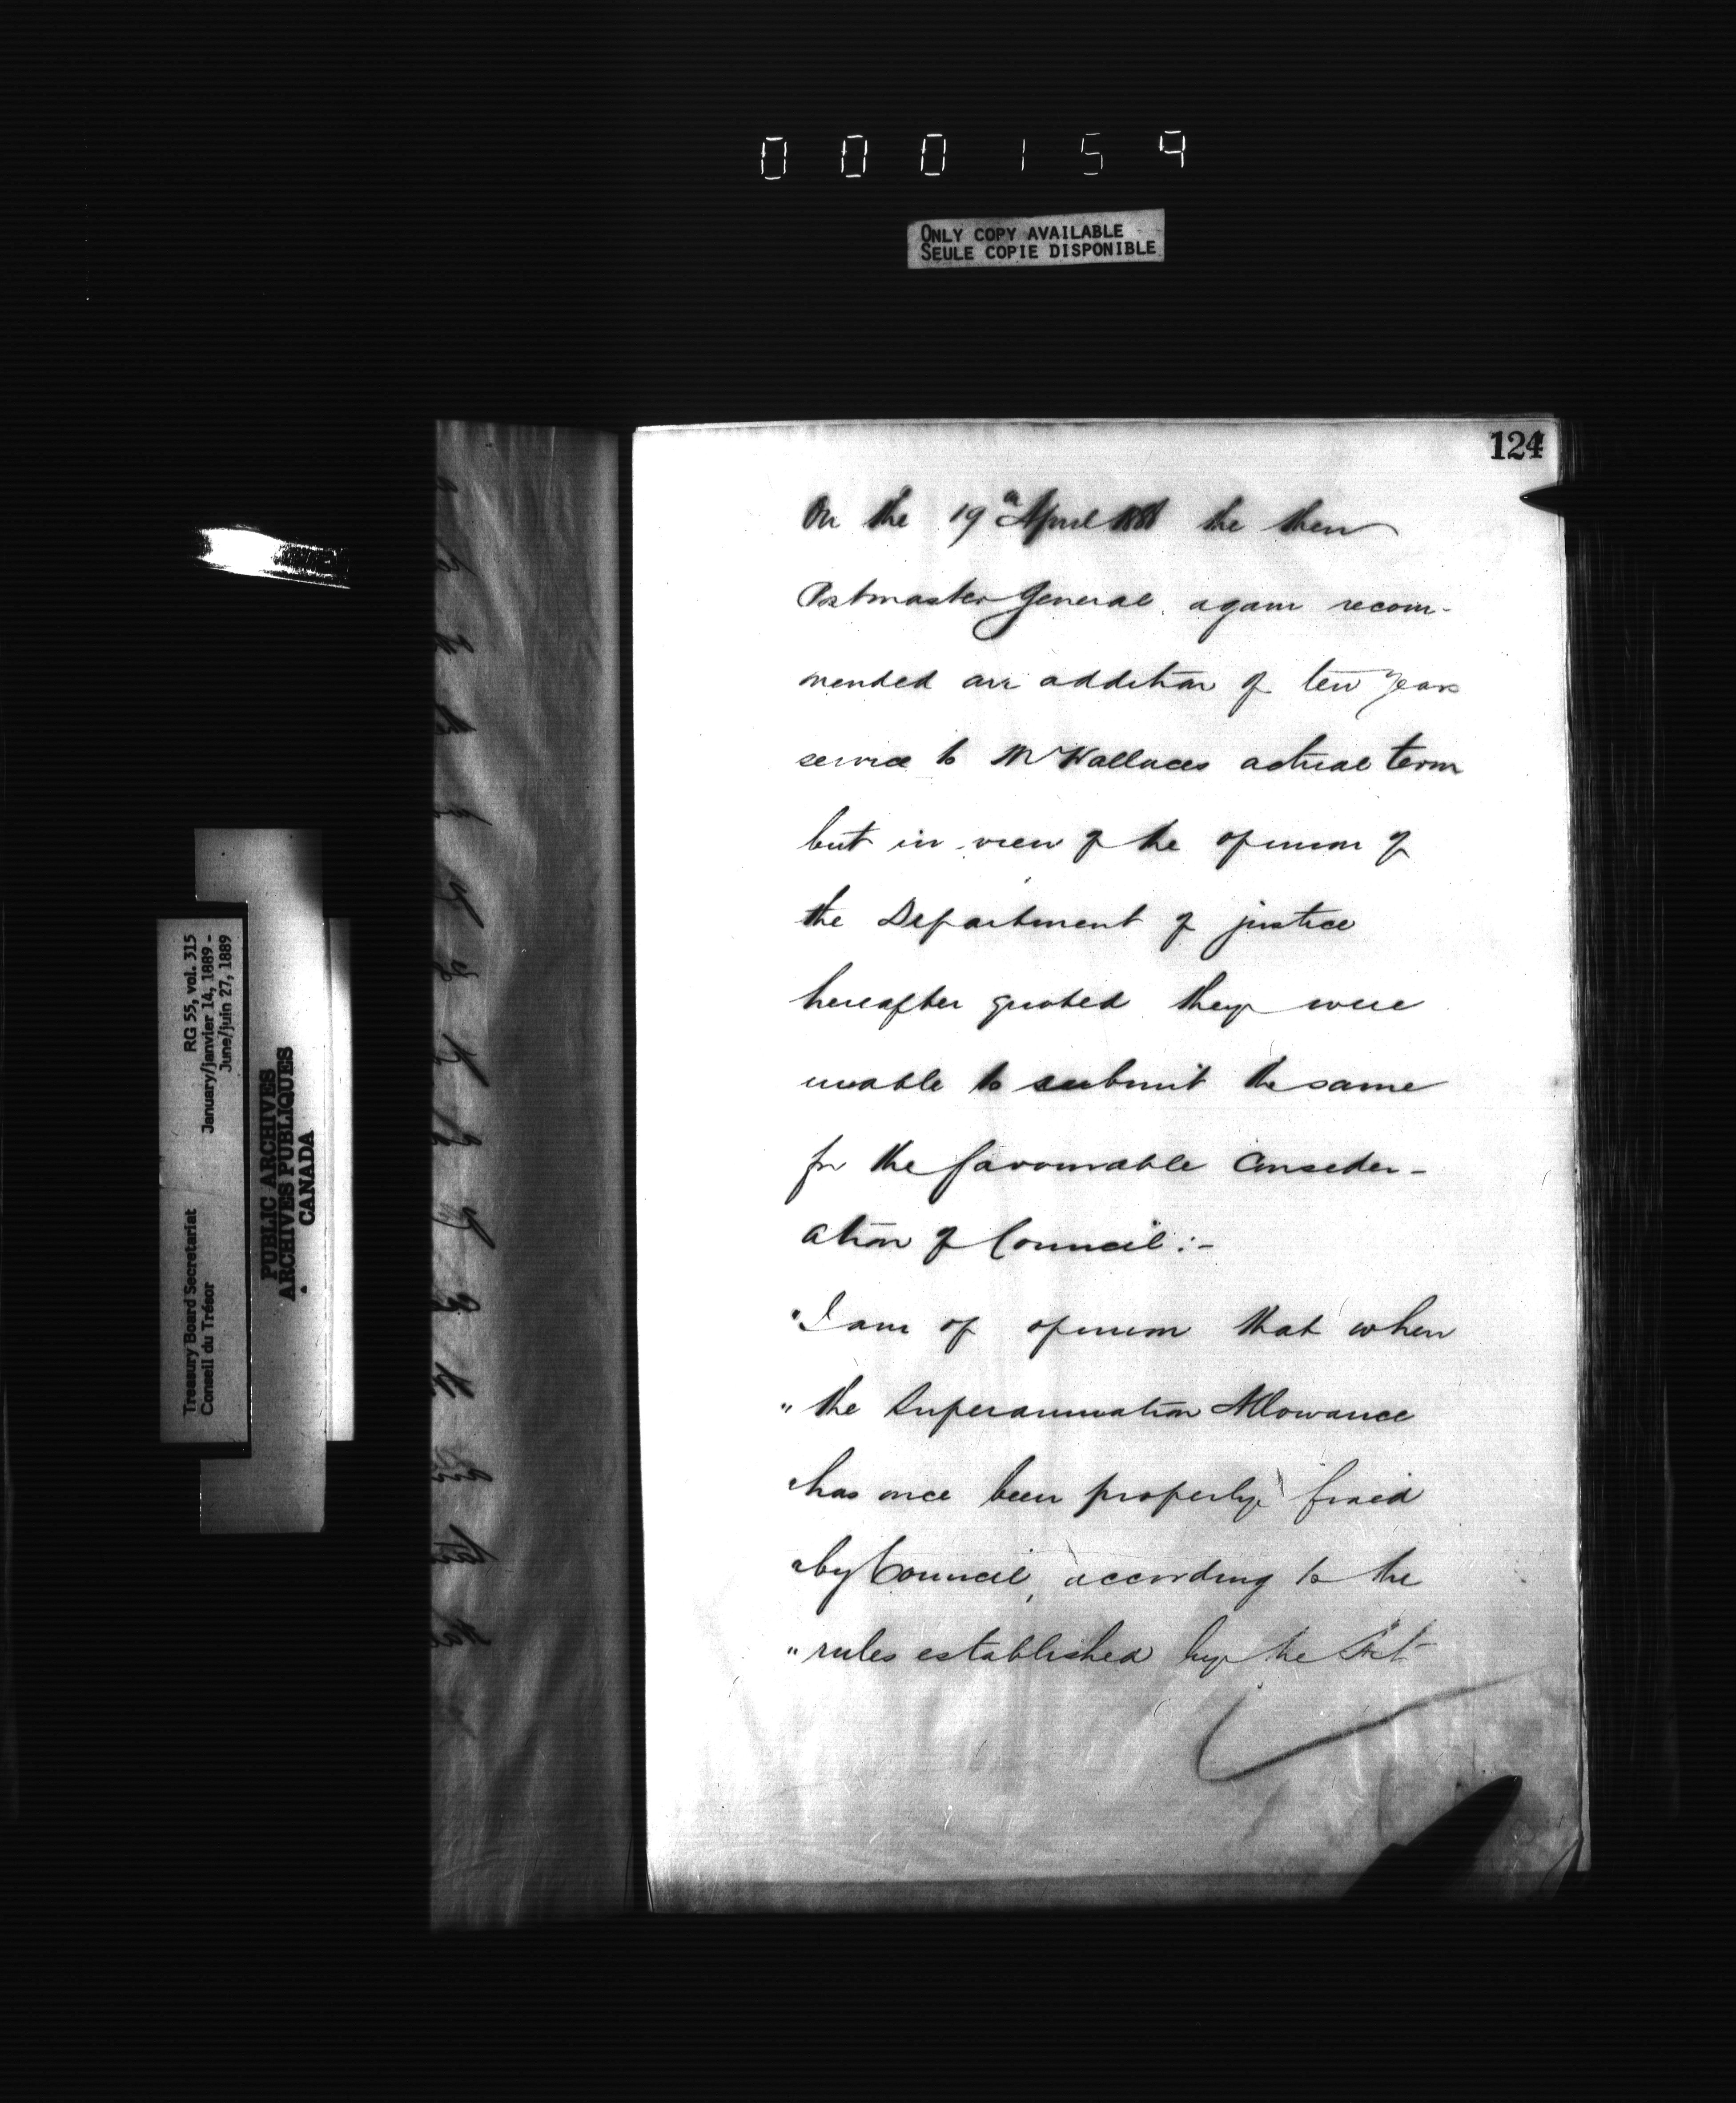 000159
ONLY COPY AVAILABLE
SEULE COPIE DISPONIBLE
124
On the 19th April 1888 the then
Postmaster General again recom-
mended an addition of ten years
service to Mr Wallaces actual term
but in view of the opinion of
the Department of justice
hereafter quoted they were
unable to submit the same
for the favourable consider-
ation of Council :-
"I am of opinion that when
" the Superannuation Allowance
"has once been properly fixed
"by Council, according to the
" rules established by the Act
RG 55, vol. 315
January/janvier 14, 1889 -
June/juin 27, 1889
Treasury Board Secretariat
Conseil du Trésor
PUBLIC ARCHIVES
ARCHIVES PUBLIQUES
CANADA